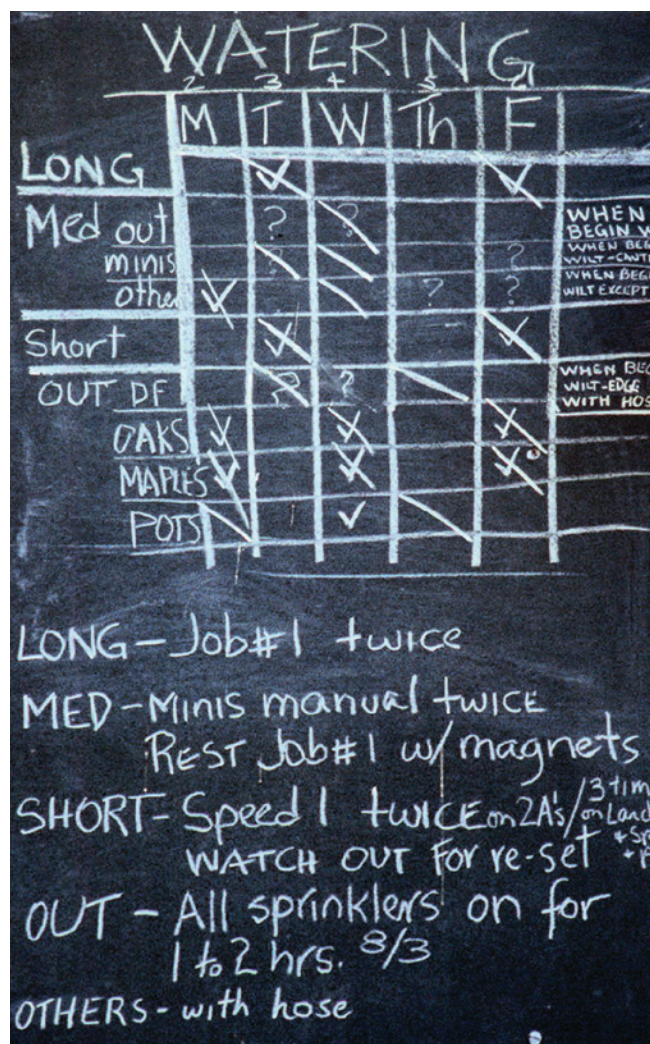 WATERING
2 3 4 5
M T W Th F
LONG ✓ ✓
Med out ? ? WHEN
BEGIN W
minis ? WHEN BEG
WILT-CANT
other ✓ ? ? WHEN BEG
WILT EXCEPT
Short ✓ ✓
OUT DF ? ? WHEN BEG
WILT-EDGE
WITH HOS
OAKS ✓ ✓ ✓
MAPLES ✓ ✓ ✓
POTS ✓
LONG - Job #1 twice
MED - MINIS manual twICE
REST Job #1 w/ magnets
SHORT - Speed 1 twICE on 2A's / 3 tim
on Land
WATCH OUT For re-set
OUT - All sprinklers on for
1 to 2 hrs. 8/3
OTHERS - with hose